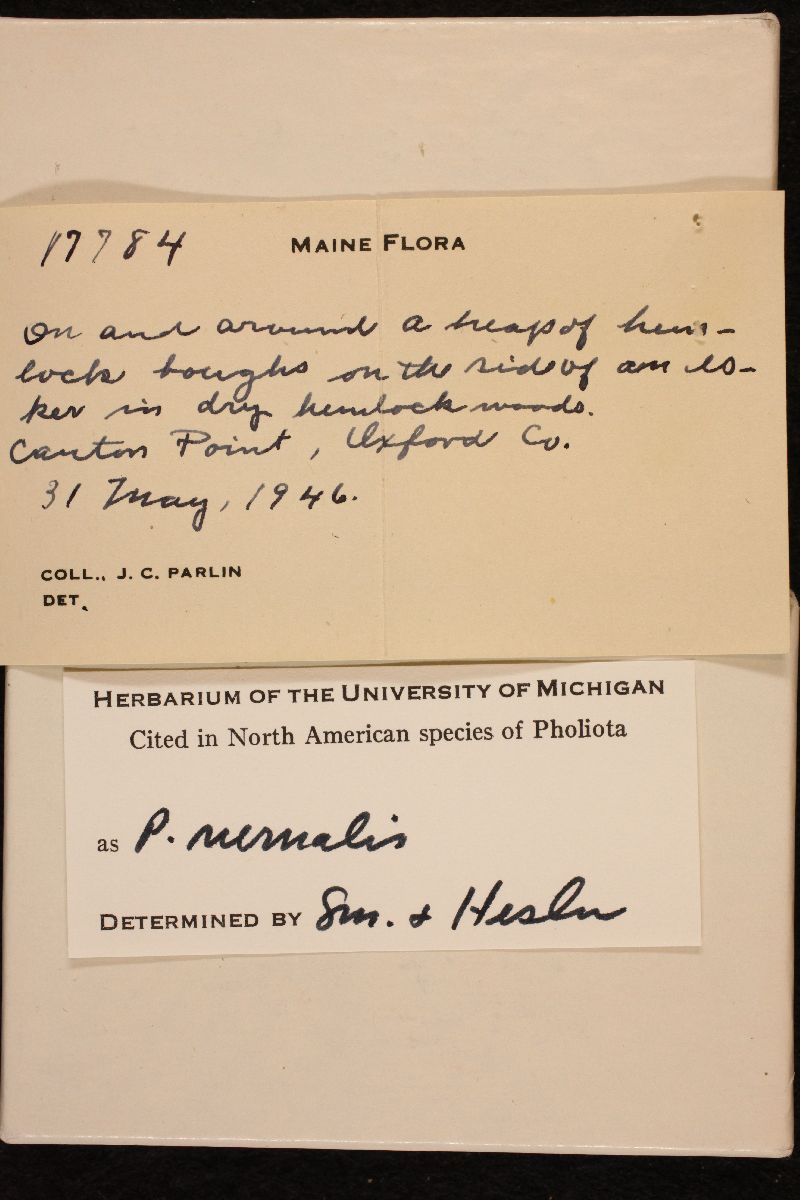 17784
MAINE FLORA
On and around a heap of hem-
lock boughs on the side of an es-
ker in dry hemlock woods.
Canton Point, Oxford Co.
31 May, 1946.
COLL., J. C. PARLIN
DET.
HERBARIUM OF THE UNIVERSITY OF MICHIGAN
Cited in North American species of Pholiota
as P. vernalis
DETERMINED BY Sm. & Hesler